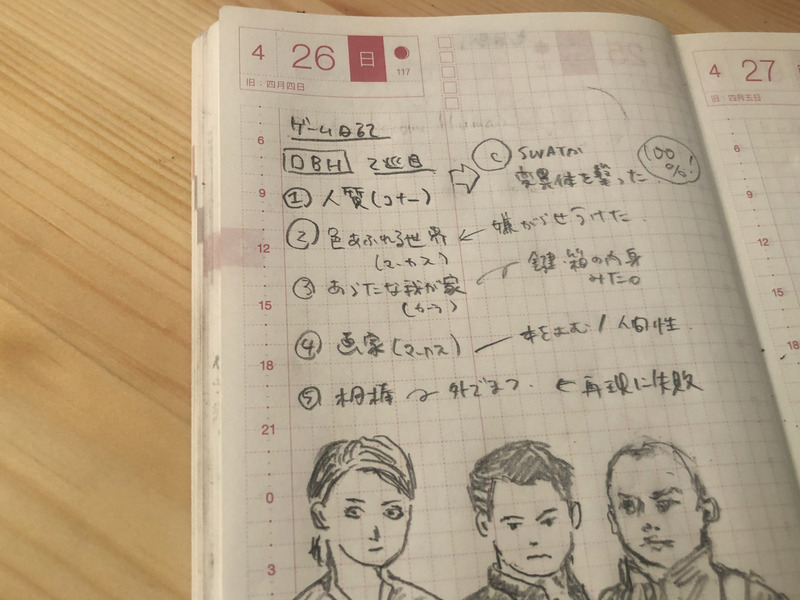 4 26 日
117
旧：四月四日
4 27
旧：四月五日
6
9
12
15
18
21
0
3
6
9
12
15
18
ゲーム日記
DBH 2巡目
① 人質(コナー)
⇨ Ⓒ SWATが
変異体を撃った
100%!
② 色あふれる世界 ← 嫌がらせうけた.
(マーカス)
③ あらたな我が家
(カーラ)
鍵・箱の内身
みた。
④ 画家(マーカス) — 本をよむ / 人間性
⑤ 相棒 〜 外でまつ. ← 再現に失敗